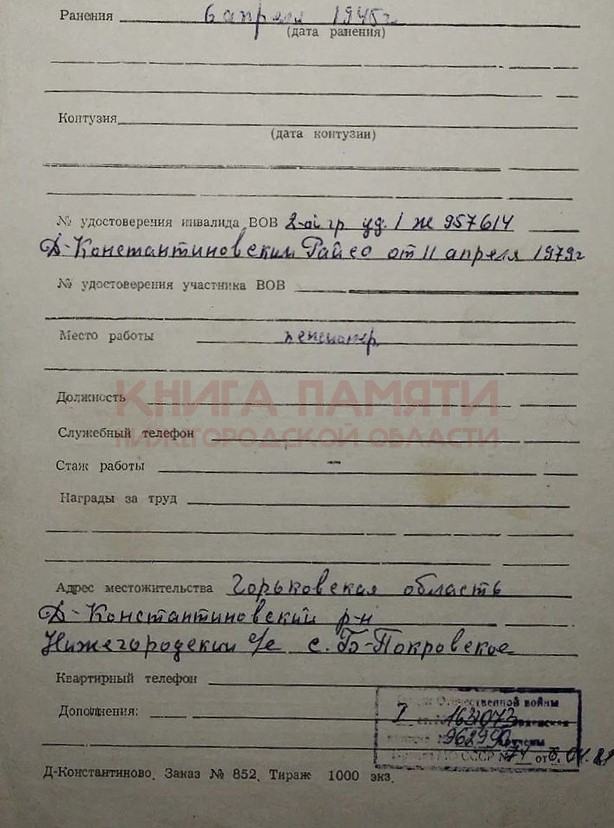 Ранения 6 апреля 1945 г
(дата ранения)
Контузия
(дата контузии)
№ удостоверения инвалида ВОВ 2-ой гр уд. I ж 957614
Д-Константиновским Райсо от 11 апреля 1979 г
№ удостоверения участника ВОВ
Место работы пенсионер
КНИГА ПАМЯТИ
Должность
НИЖЕГОРОДСКОЙ ОБЛАСТИ
Служебный телефон
Стаж работы –
Награды за труд
Адрес местожительства Горьковская область
Д-Константиновский р-н
Нижегородский с/с с. Б-Покровское
Квартирный телефон
Отечественной войны
Дополнения: I
СССР № от
Д-Константиново. Заказ № 852. Тираж 1000 экз.